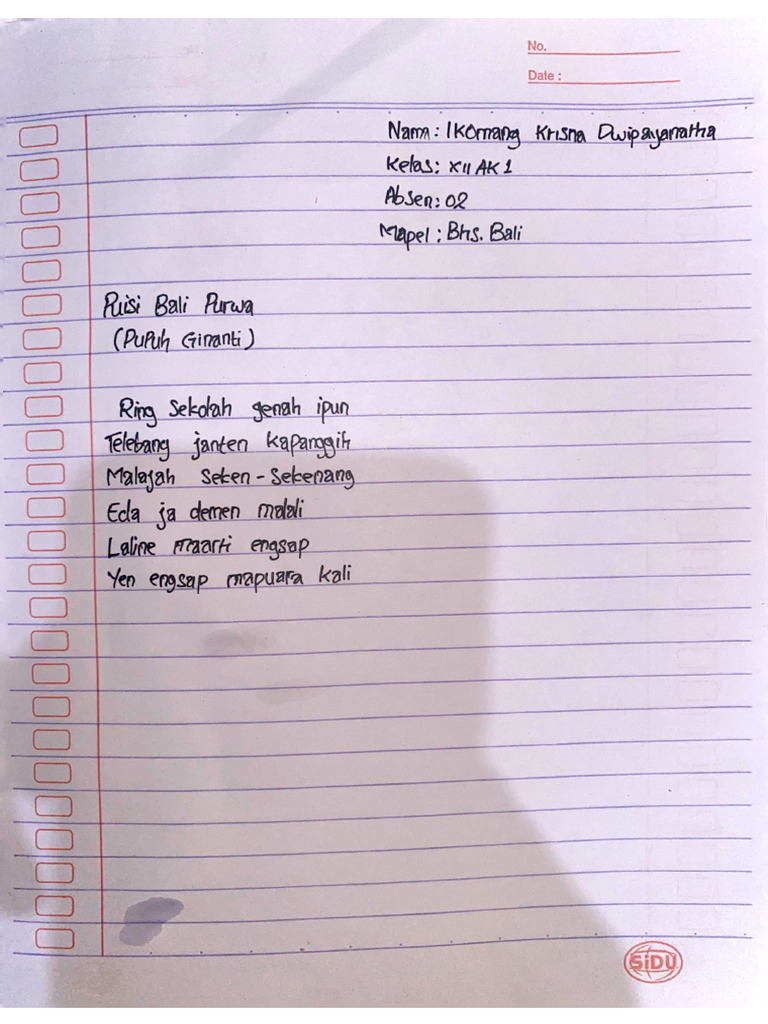 No.
Date :
Nama : I Komang Krisna Dwipayanatha
Kelas : XII AK 1
Absen : 02
Mapel : Bhs. Bali
Puisi Bali Purwa
(Pupuh Ginanti)
Ring Sekolah genah ipun
Telebang janten kapanggih
Malajah seken - sekenang
Eda ja demen malali
Laline maarti engsap
Yen engsap mapuara kali
SIDU